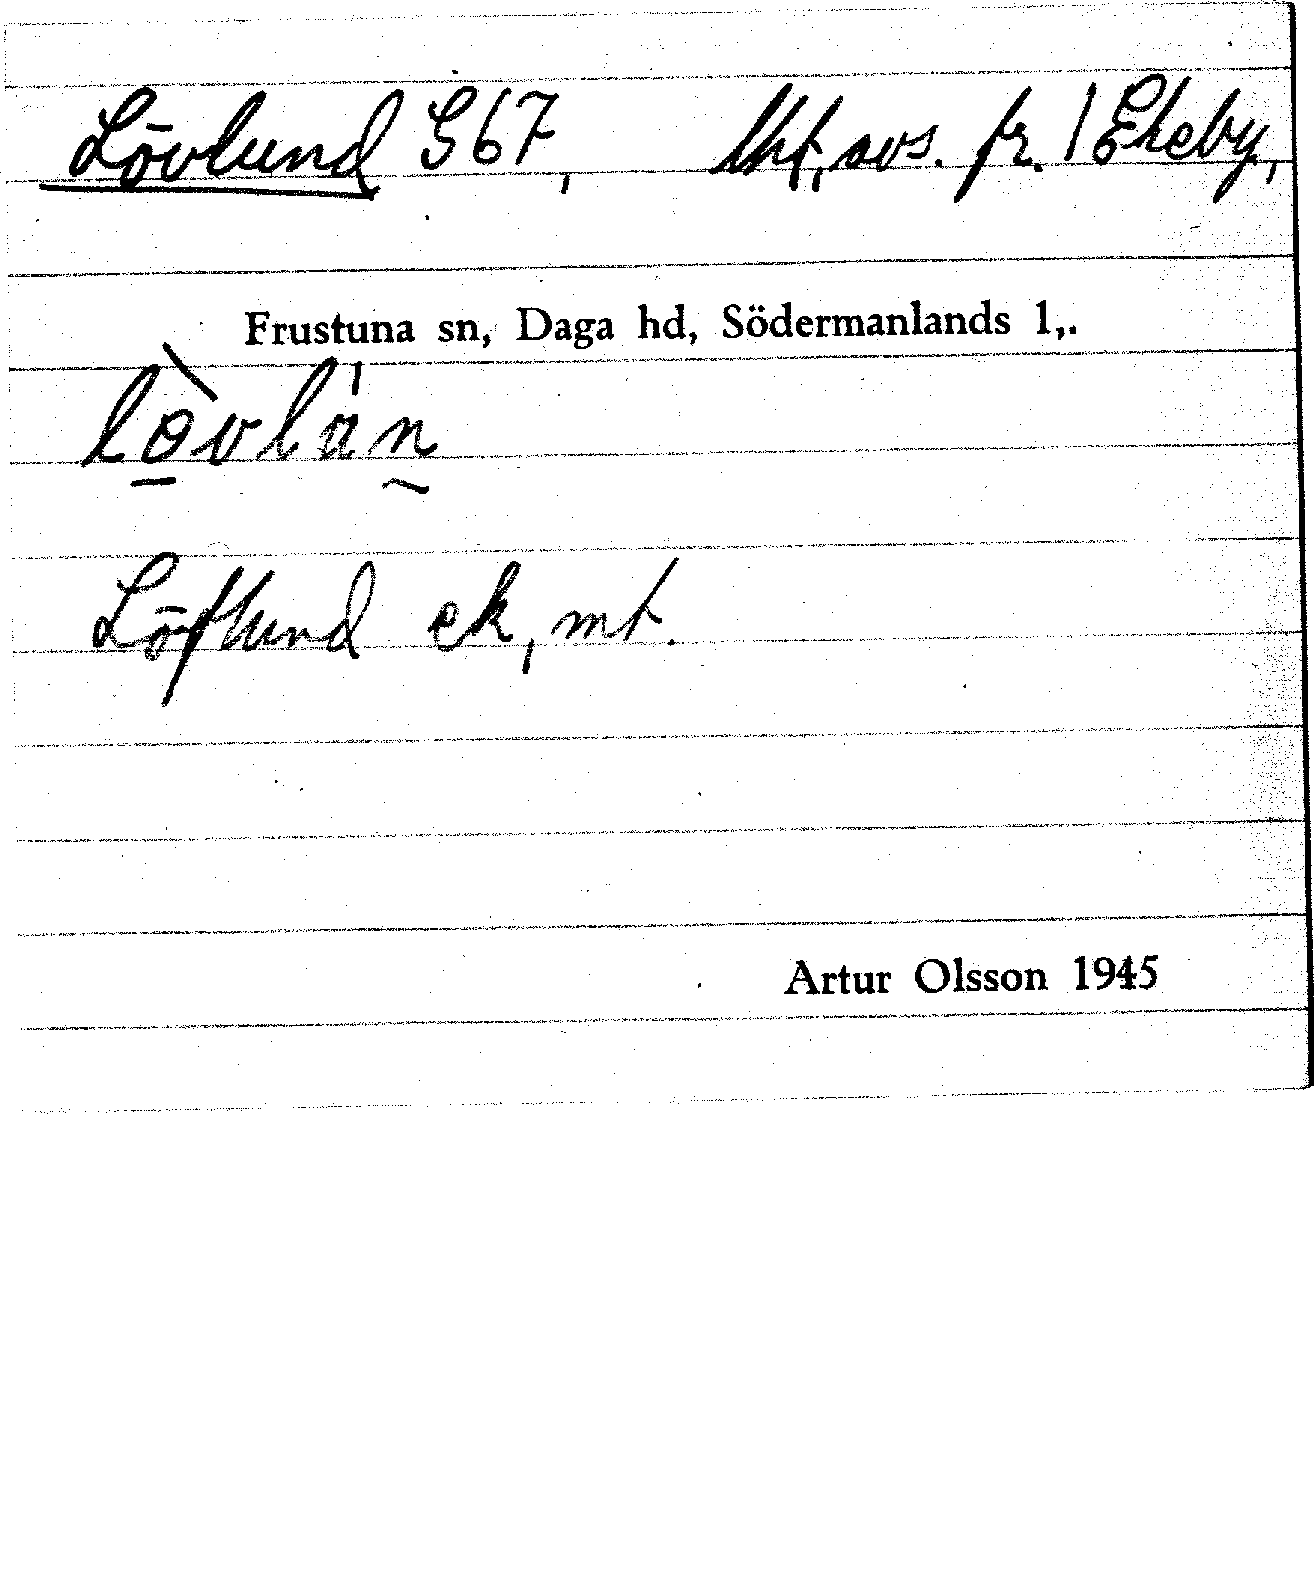 Lövlund G67, lht, sos. fr. 1 Ekeby,
Frustuna sn, Daga hd, Södermanlands l,.
lòvlán
Löflund ek, mt.
Artur Olsson 1945